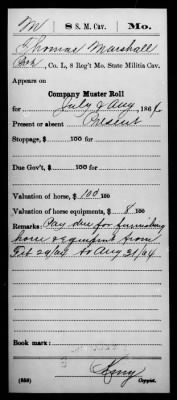 M | 8 S. M. Cav. | Mo.
Thomas Marshall
Pvt, Co. L, 8 Reg't Mo. State Militia Cav.
Appears on
Company Muster Roll
for July & Aug, 186
Present or absent Present
Stoppage, $ 100 for
Due Gov't, $ 100 for
Valuation of horse, $ 100 100
Valuation of horse equipments, $ 8 100
Remarks: Pay due for furnishing
horse & equipmt from
Feb 29/64 to Aug 31/64
Book mark:
(359)
Copyist.